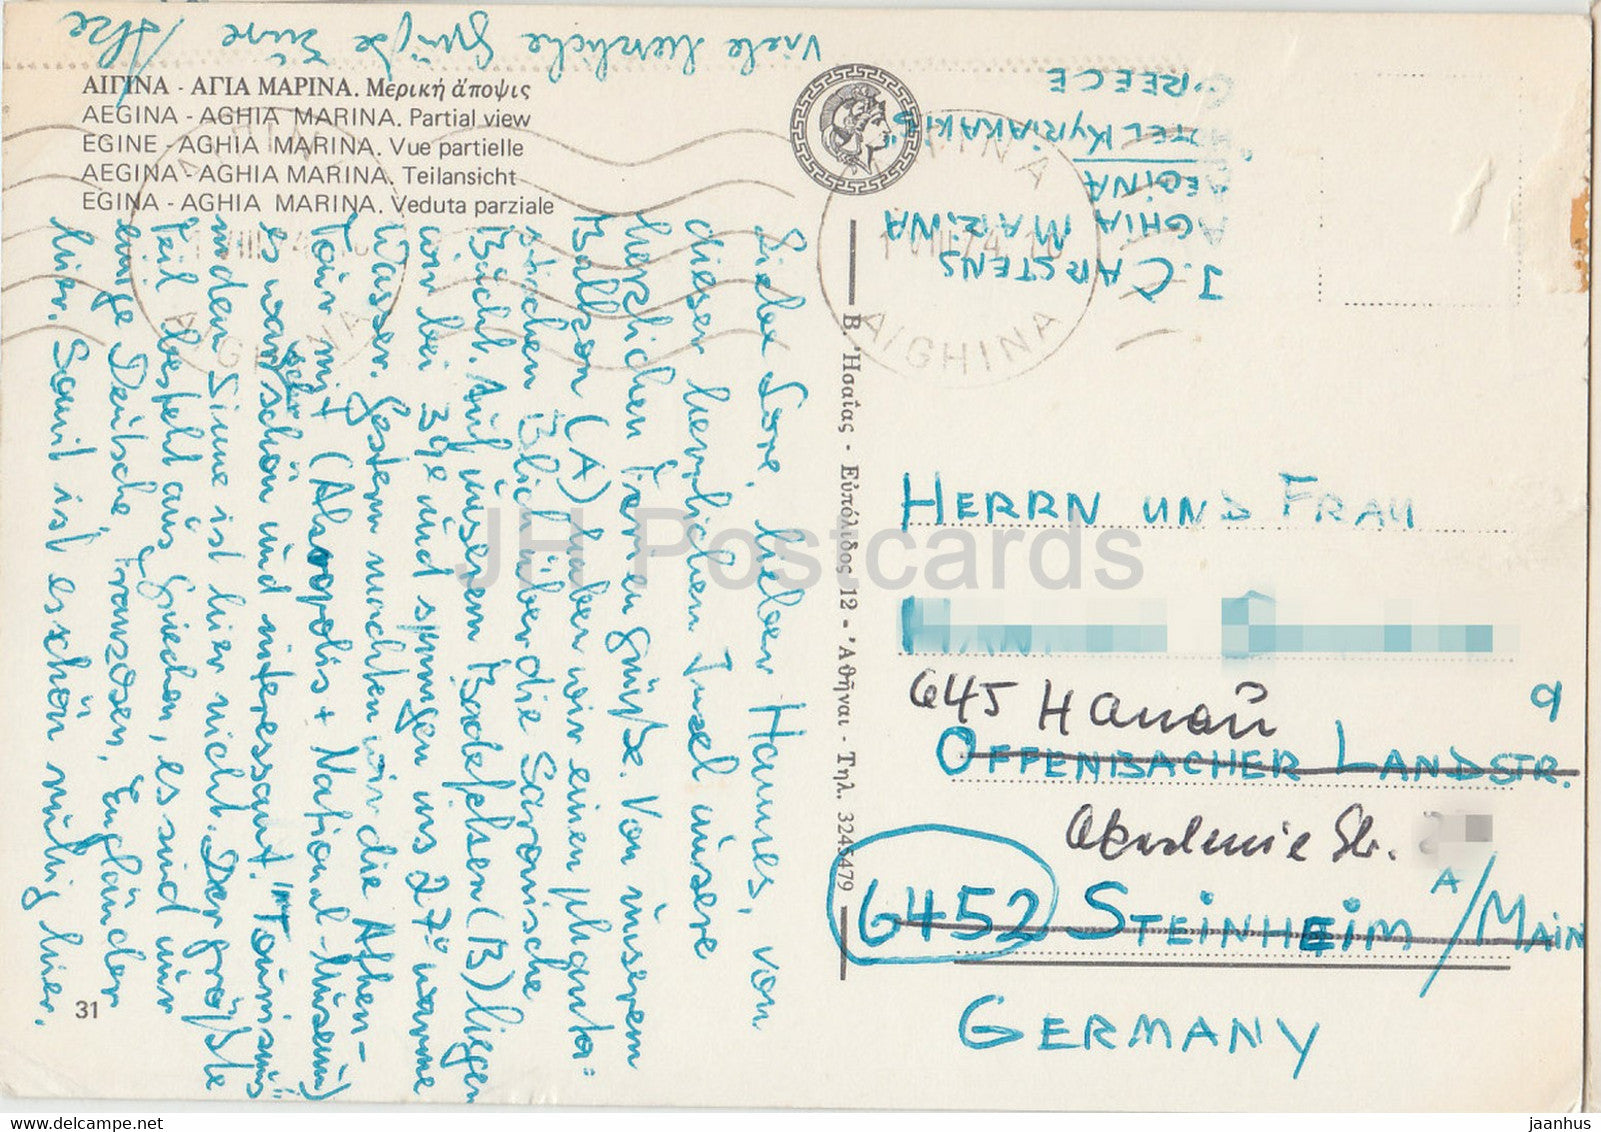 ΑΙΓΙΝΑ - ΑΓΙΑ ΜΑΡΙΝΑ. Μερική ἄποψις
AEGINA - AGHIA MARINA. Partial view
EGINE - AGHIA MARINA. Vue partielle
AEGINA - AGHIA MARINA. Teilansicht
EGINA - AGHIA MARINA. Veduta parziale
Liebe Lore, lieber Hannes, von
dieser herrlichen Insel unsere
herzlichen Feriengrüße. Von unserem
Balkon (A) haben wir einen phanta=
stischen Blick über die Saronische
Bucht. Auf unserem Badefelsen (B) liegen
wir bei 39° und springen ins 27° warme
Wasser. Gestern machten wir die Athen-
Tour mit (Akropolis + National-Museum)
es war sehr schön und interessant. "Tourismus"
in dem Sinne ist hier nicht. Der größte
Teil besteht aus Griechen, es sind nur
einige Deutsche, Franzosen, Engländer
hier. Somit ist es schön ruhig hier.
Viele herzliche Grüße Eure
31
Β. Ἡσαΐας - Εὐπόλιδος 12 - Ἀθῆναι - Τηλ. 3245479
J. CARSTENS
AGHIA MARINA
AEGINA
HOTEL KYRIAKAKIS
GREECE
AIGHINA
ΑΙΓΙΝΑ
AIGHINA
HERRN UND FRAU
645 Hanau
9
OFFENBACHER LANDSTR.
Akademie Str.
6452 STEINHEIM A/MAIN
GERMANY
JH Postcards
jaanhus delcampe.net